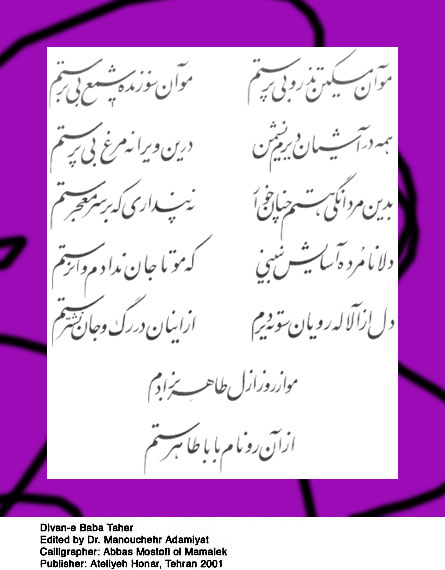 موآن مسکین تذرو بی پرستم موآن سوزنده شمع بی سرستم
همه در آشیان دیرم نشیمن درین ویرانه مرغ بی پرستم
بدین مردانگی هستم چنان خوار نه پنداری که بر سر معجرستم
دلا تا مرده آسایش نبینی که مو تا جان ندادم وانرستم
دل از آلاله رویان سوته دیرم ازاینان در رگ و جان نشترستم
مو از روز ازل طاهر بزادم
از آن رو نام بابا طاهرستم
Divan-e Baba Taher
Edited by Dr. Manouchehr Adamiyat
Calligrapher: Abbas Mostofi ol Mamalek
Publisher: Ateliyeh Honar, Tehran 2001